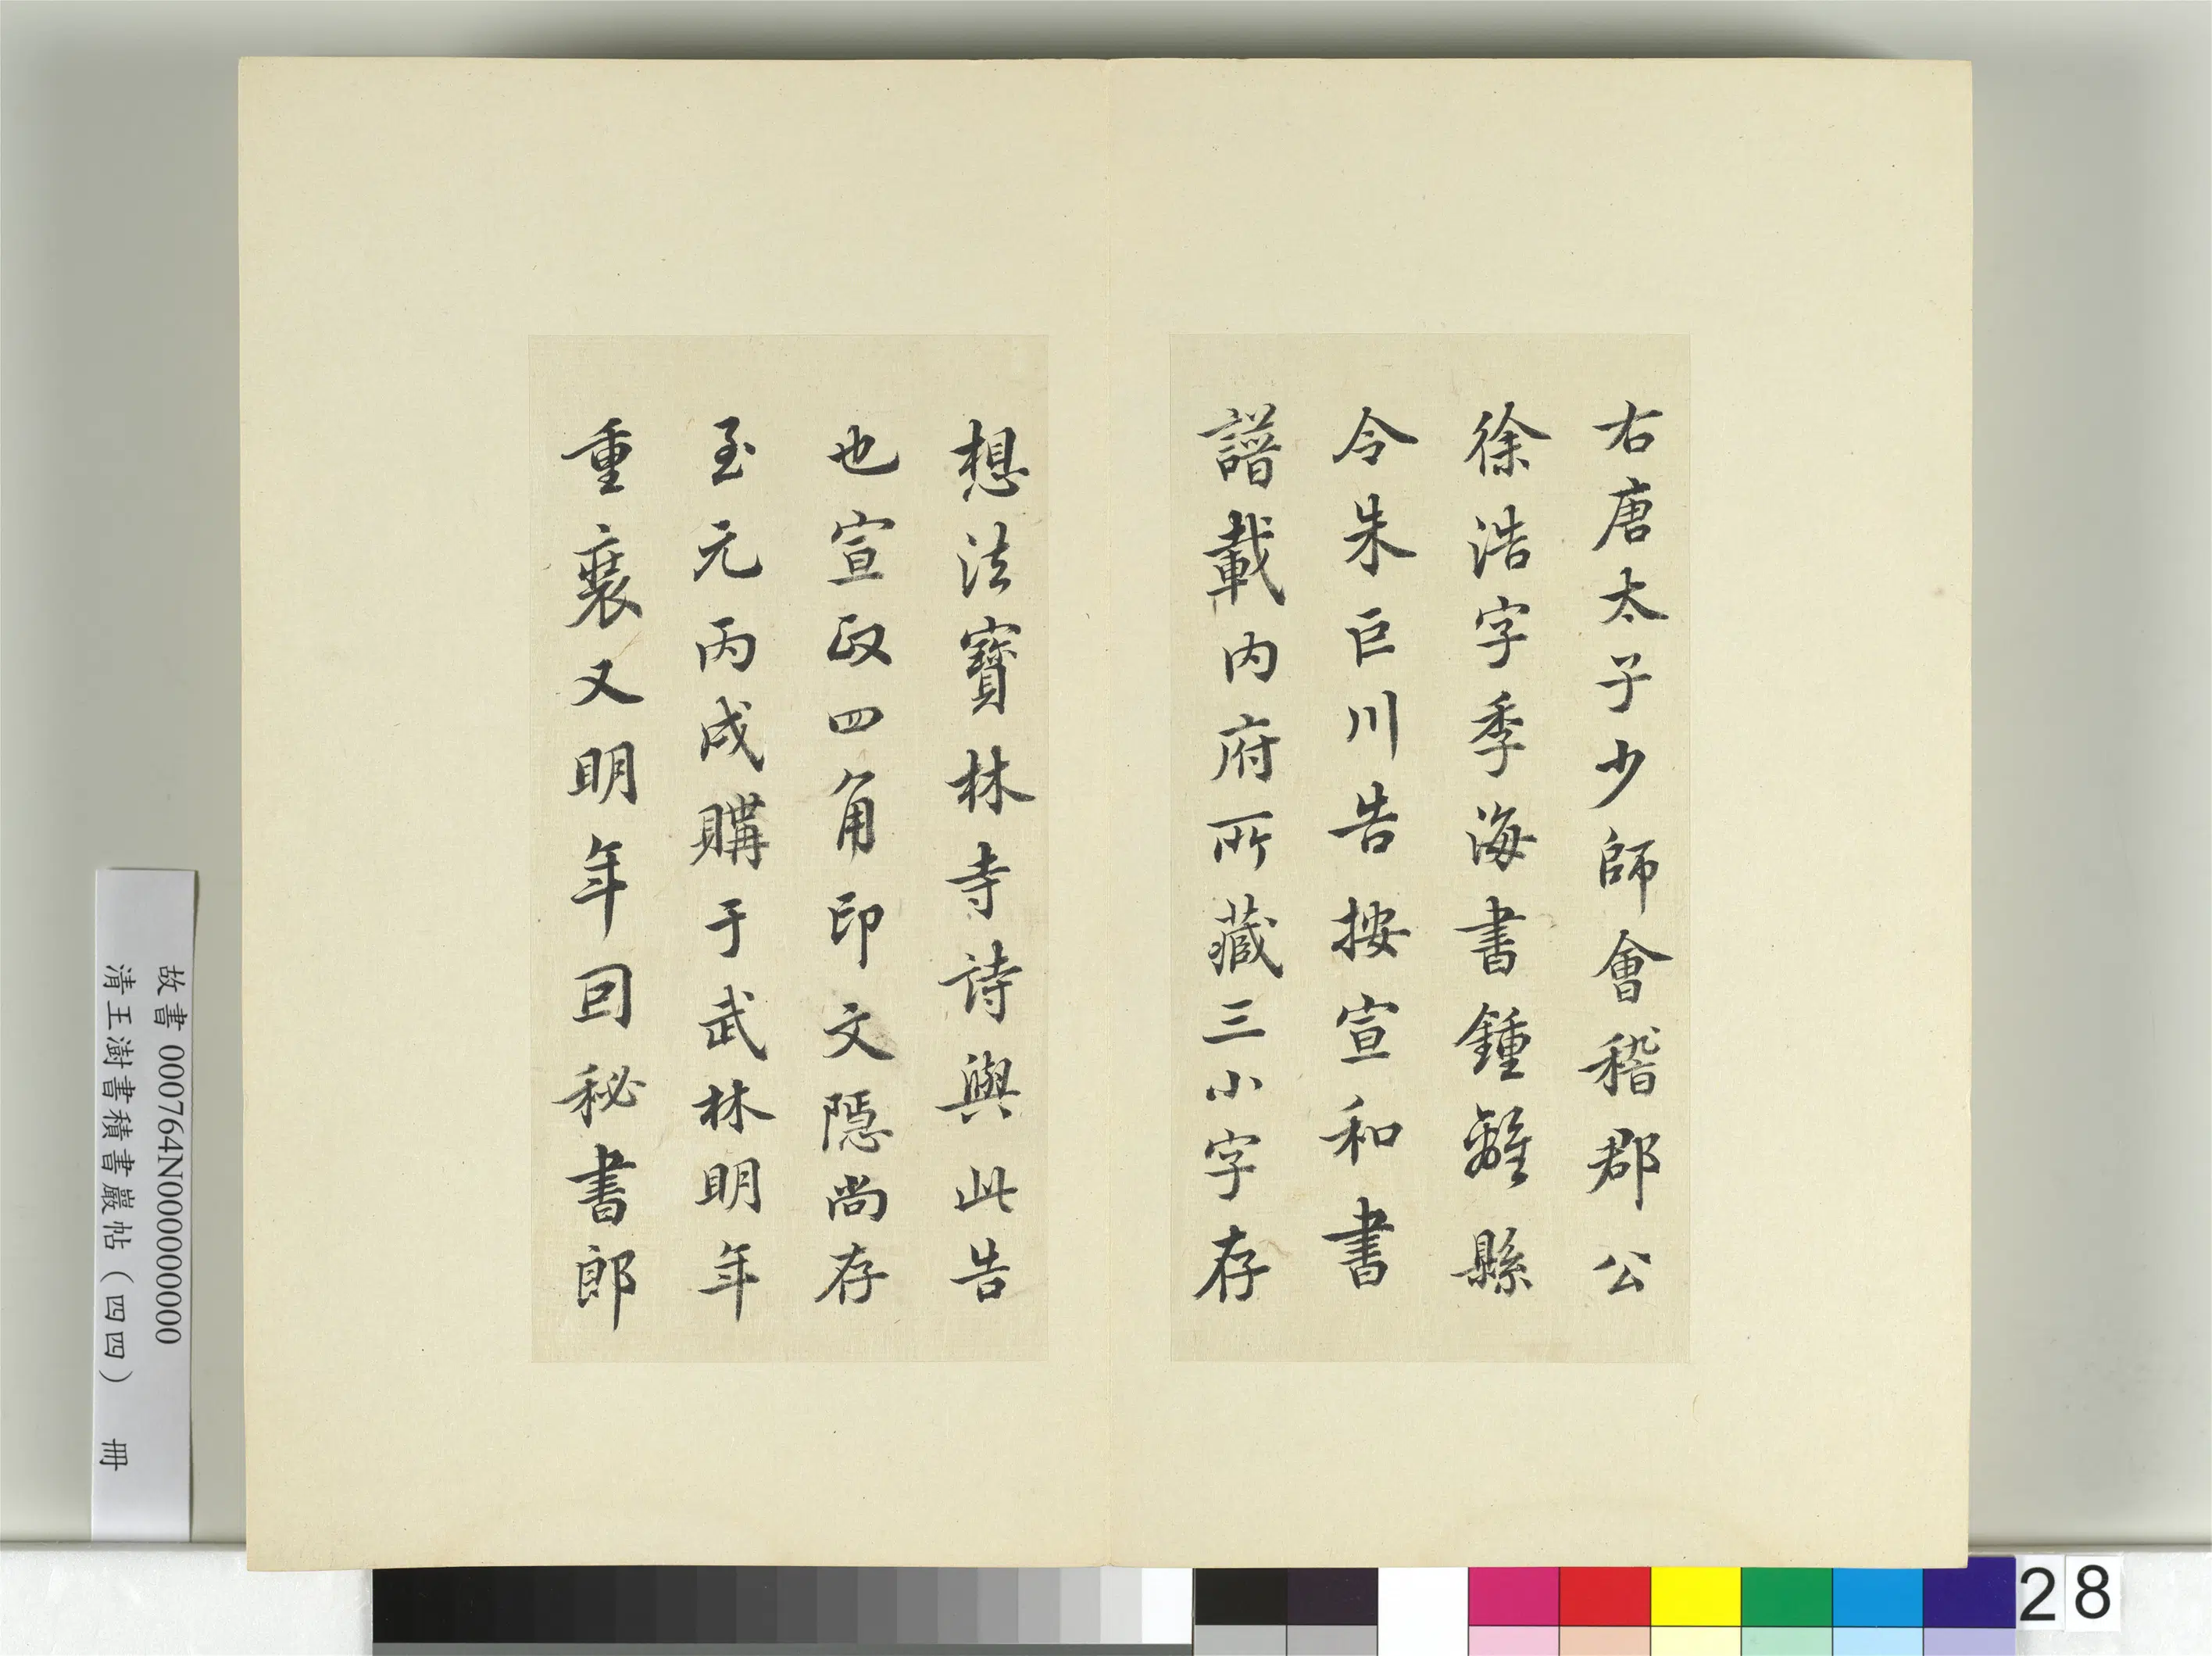 右唐太子少師會稽郡公
徐浩字季海書鍾離縣
令朱巨川告按宣和書
譜載內府所藏三小字存
想法寶林寺詩與此告
也宣政四角印文隱尚存
至元丙戌購于武林明年
重裝又明年囙秘書郎
故書 000764N000000000
清王澍書積書巖帖（四四） 冊
28